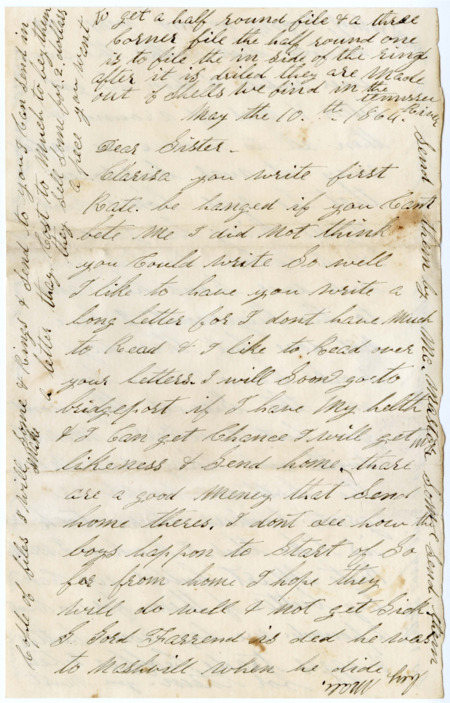 to get a half round file & a three
Corner file the half round one
is to file the in side of the ring
after it is driled they are made
out of Shells we find in the
tennessee River
May the 10th 1864.
Dear Sister.
Clarisa you write first
Rate. be hanged if you Cant
bete me I did not think
you Could write So well
I like to have you write a
long letter for I dont have Much
to Read & I like to Read over
your letters. I will Soon go to
bridgeport if I have My helth
& I Can get Chance I will get My
likeness & Send home. thare
are a good Meney that Send
home theres. I dont See how the
boys happon to Start of So
far from home I hope they
will do well & not get Sick
Ford Farrend is ded he was
to Nashvill when he dide
of files I will Some & Rings & Send to you
Make
a letter thay Cost to Much to buy them
they Sell Some for a dollars
a piece you want
Send them by
Send them
by Male.